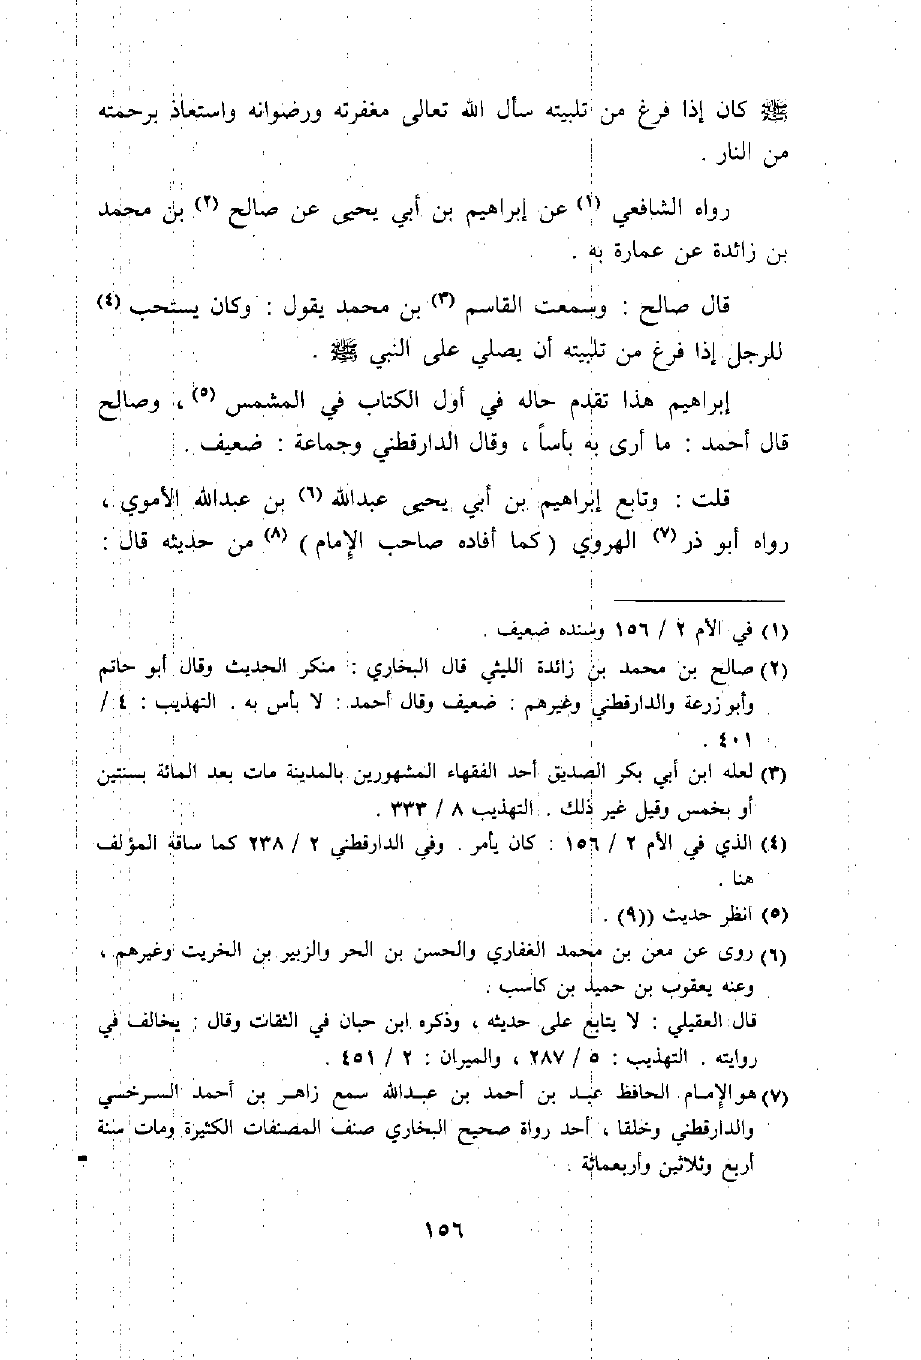 ﷺ كان إذا فرغ من تلبيته سأل الله تعالى مغفرته ورضوانه واستعاذ برحمته
من النار .
رواه الشافعي (١) عن إبراهيم بن أبي يحيى عن صالح (٢) بن محمد
بن زائدة عن عمارة به .
قال صالح : وسمعت القاسم (٣) بن محمد يقول : وكان يستحب (٤)
للرجل إذا فرغ من تلبيته أن يصلي على النبي ﷺ .
إبراهيم هذا تقدم حاله في أول الكتاب في المشمس (٥) ، وصالح
قال أحمد : ما أرى به بأساً ، وقال الدارقطني وجماعة : ضعيف .
قلت : وتابع إبراهيم بن أبي يحيى عبدالله (٦) بن عبدالله الأموي ،
رواه أبو ذر (٧) الهروي ( كما أفاده صاحب الإمام ) (٨) من حديثه قال :
(١) في الأم ٢ / ١٥٦ وسنده ضعيف .
(٢) صالح بن محمد بن زائدة الليثي قال البخاري : منكر الحديث وقال أبو حاتم
وأبو زرعة والدارقطني وغيرهم : ضعيف وقال أحمد : لا بأس به . التهذيب : ٤ /
٤٠١ .
(٣) لعله ابن أبي بكر الصديق أحد الفقهاء المشهورين بالمدينة مات بعد المائة بسنتين
أو بخمس وقيل غير ذلك . التهذيب ٨ / ٣٣٣ .
(٤) الذي في الأم ٢ / ١٥٦ : كان يأمر . وفي الدارقطني ٢ / ٢٣٨ كما ساقه المؤلف
هنا .
(٥) انظر حديث ((٩) .
(٦) روى عن معن بن محمد الغفاري والحسن بن الحر والزبير بن الخريت وغيرهم ،
وعنه يعقوب بن حميد بن كاسب .
قال العقيلي : لا يتابع على حديثه ، وذكره ابن حبان في الثقات وقال : يخالف في
روايته . التهذيب : ٥ / ٢٨٧ ، والميران : ٢ / ٤٥١ .
(٧) هو الإمام الحافظ عبد بن أحمد بن عبدالله سمع زاهر بن أحمد السرخسي
والدارقطني وخلقا ، أحد رواة صحيح البخاري صنف المصنفات الكثيرة ومات سنة
أربع وثلاثين وأربعمائة .
١٥٦